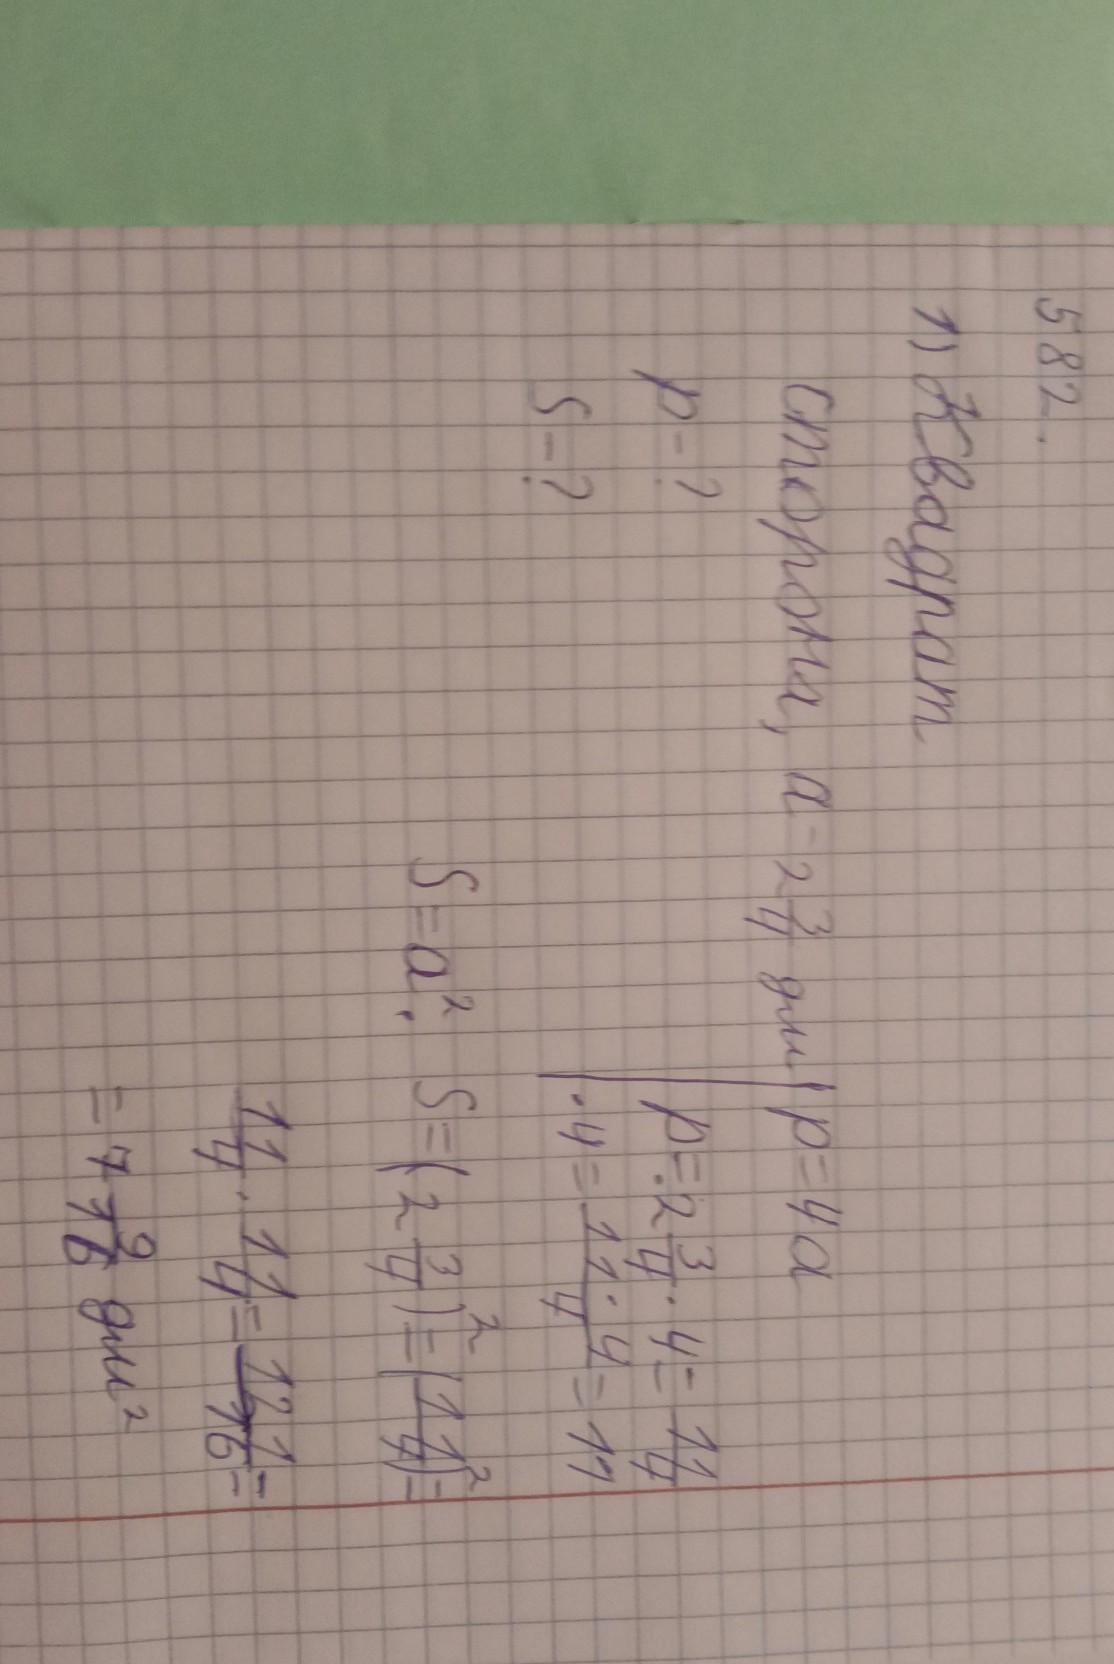 582.
1) Квадрат
сторона, a - 2 3/4 дм | p = 4a
p - ?
p = 2 3/4 · 4 = 11/4
S - ?
· 4 = 11 · 4/4 = 11
S = a². S = (2 3/4)² = (11/4)² =
11/4 · 11/4 = 121/16 =
= 7 9/16 дм²